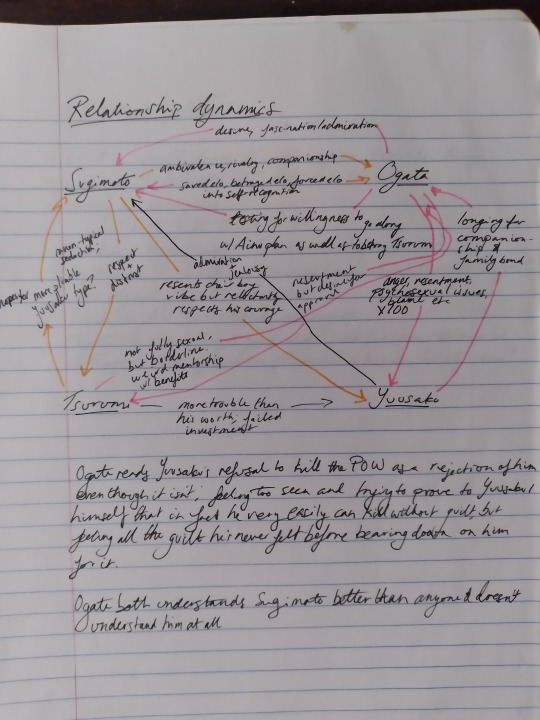 Relationship dynamics
desire, fascination/admiration
Sugimoto
ambivalence, rivalry, companionship
Ogata
saved elo, betrayed elo, forced elo
into self-recognition
testing for willingness to
go along
w/ Ainu plan as well as to bring Tsurumi
longing for
companion-
ship &
family bond
admiration
jealousy
respect
distrust
seduction,
more pliable
Yuusaku type?
resents choir boy
vibe but reluctantly
respects his courage
resentment
but desire for
approval
anger, resentment,
psychosexual issues,
blame etc
x100
not fully sexual,
but borderline
weird mentorship
w/ benefits
Tsurumi
more trouble than
his worth, failed
investment
Yuusaku
Ogata reads Yuusaku's refusal to kill the POW as a rejection of him
even though it isn't, feeling too seen and trying to prove to Yuusaku/
himself that in fact he very easily can kill without guilt, but
feeling all the guilt he's never felt before bearing down on him
for it.
Ogata both understands Sugimoto better than anyone & doesn't
understand him at all